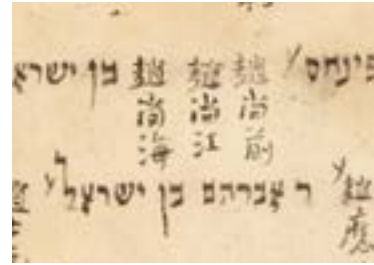 פינחס 趙尚前 趙尚江 趙尚海 בן ישרא
趙應 ר אברהם בן ישראל